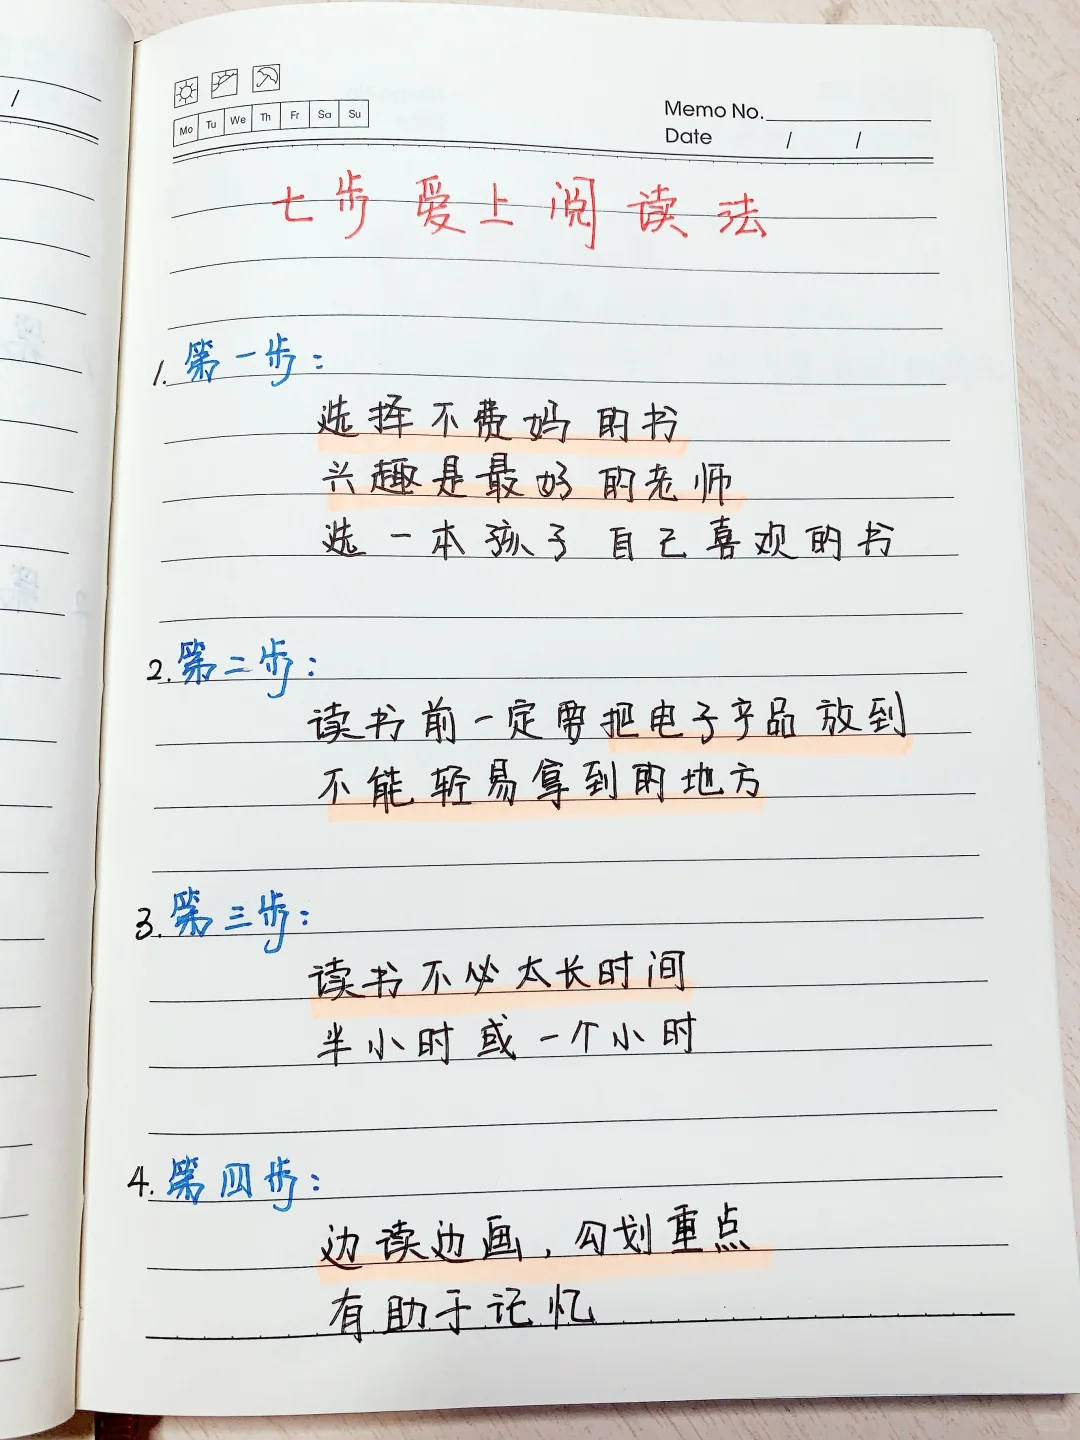 /
Mo Tu We Th Fr Sa Su
Memo No.
Date / /
七步爱上阅读法
1. 第一步:
选择不费妈的书
兴趣是最好的老师
选一本孩子自己喜欢的书
2. 第二步:
读书前一定要把电子产品放到
不能轻易拿到的地方
3. 第三步:
读书不必太长时间
半小时或一个小时
4. 第四步:
边读边画,勾划重点
有助于记忆